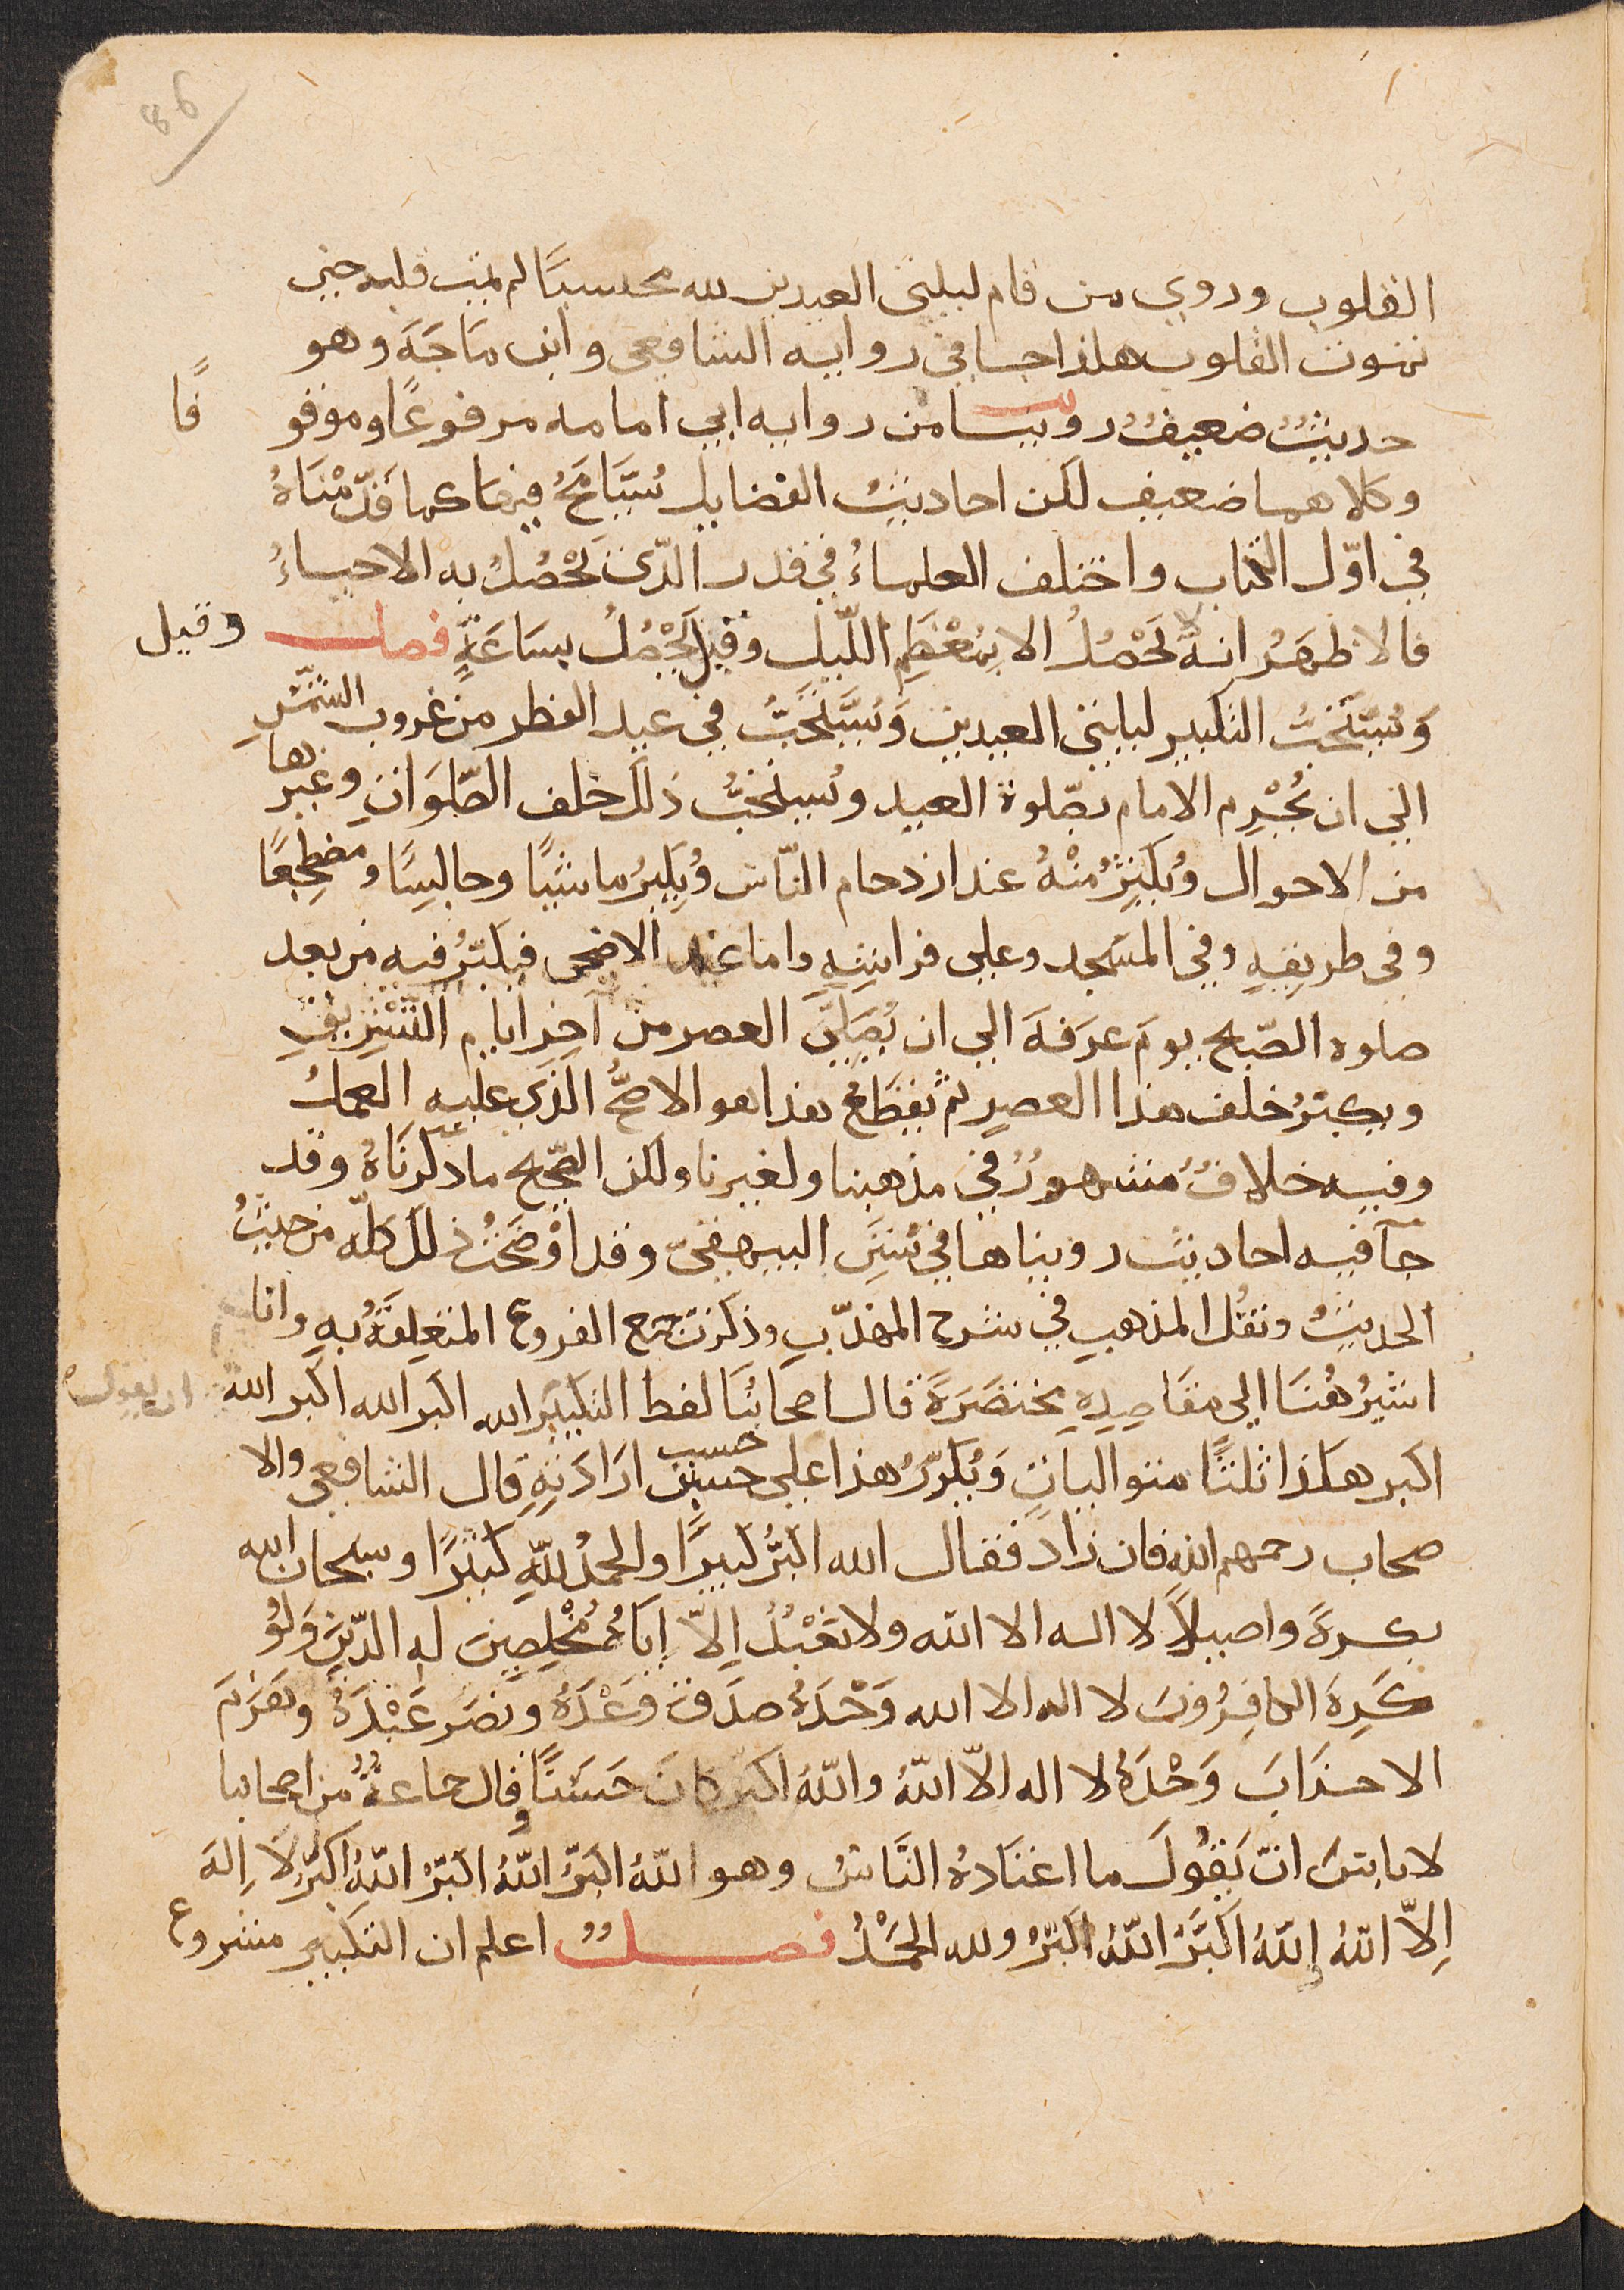 ٨٦
القلوب وروي من قام ليلتي العيدين لله محتسبًا لم يمت قلبه حين
تموت القلوب هكذا جا في رواية الشافعي وابن مَاجَهَ وهو
حديثٌ ضعيفٌ رويناه من رواية ابي امامه مرفوعًا وموقو فًا
وكلاهما ضعيف لكن احاديثُ الفضايل يُتَسَامَحُ فيها كما قدّمْنَاهُ
في اوّل الكتاب واختلف العلماءُ في قدر الّذي يَحْصُلُ به الاحياءُ
فالاظهَرُ انه لا يَحْصُلُ الا بمُعْظَمِ اللّيل وقيل يَحْصُلُ بسَاعَةٍ فصل وقيل
وَيُسْتَحَبُّ التكبير ليلتي العيدين وَيُسْتَحَبُّ في عيد الفطر من غروب الشمْسِ
الي ان يُحْرِم الامام بصّلوة العيد ويُستحَبُّ ذلك خلف الصّلَوَاتِ وغيرها
من الاحوال ويُكثِرُ مِنْهُ عند ازدحام النّاس ويُكبِّرُ ماشيًا وجالِسًا ومضطجِعًا
وفي طريقِهِ وفي المسْجد وعلي فراشِهِ واما عيد الاضحى فيكبّرُ فيه من بعد
صلوة الصّبح يومَ عرَفَهَ الي ان يُصَلِّيَ العصر من آخِرِ ايام التشْرِيقِ
ويكبّرُ خلف هذا العصرِ ثم يقطَعُ هذا هو الاصَحُّ الّذي عليه العملُ
وفيه خلافٌ مشهورٌ في مذهبنا ولغيرنا ولكن الصّحيح ما ذكرنَاهُ وقد
جآ فيه احاديث رويناها في سُنَنِ البيهقيّ وقد اوْضَحْتُ ذلك كلّه من حيثُ
الحديثُ ونقْلُ المذهبِ في شرح المهذّبِ وذكرتُ جميع الفروع المتعلِقَةُ بهِ وانا
اشيرُ هُنَا الي مقاصِدِهِ مختصَرَةً قال اصحابُنَا لفظ التكبير ان يقولَ الله اكبر الله اكبر الله
اكبر هكذا ثلثًا متواليات وَيُكرّرُ هذا علي حسب ارَادَتِهِ قال الشافعي والا
صحاب رحمهم الله فان زادَ فقال الله اكبَرُ كبيرًا والحمْدُ للّهِ كثيرًا وسبحان الله
بكرةً واصيلاً لا اله الا الله ولا نَعْبُدُ اِلاّ اِيّاهُ مُخْلِصِينَ له الدّينَ وَلَوْ
كَرِهَ الكافِرُونَ لا اله الا الله وَحْدَهُ صدَقَ وَعْدَهُ ونصَرَ عَبْدَهُ وهَزَمَ
الاحزَابَ وَحْدَهُ لا اله الاّ اللّهُ واللّهُ اكبر كانَ حَسَنًا وقال جماعةٌ من اصحابنا
لا باسَ انْ يَقُولَ ما اعتَادهُ النَّاسُ وهو اللّهُ اكبَرُ اللّهُ اكبَرُ اللّهُ اكبَرُ لَا اِلهَ
اِلاّ اللهُ واللّهُ اكبَرُ اللّهُ اكبَرُ ولله الحَمْدُ فصلٌ اعلم ان التكبير مشروع